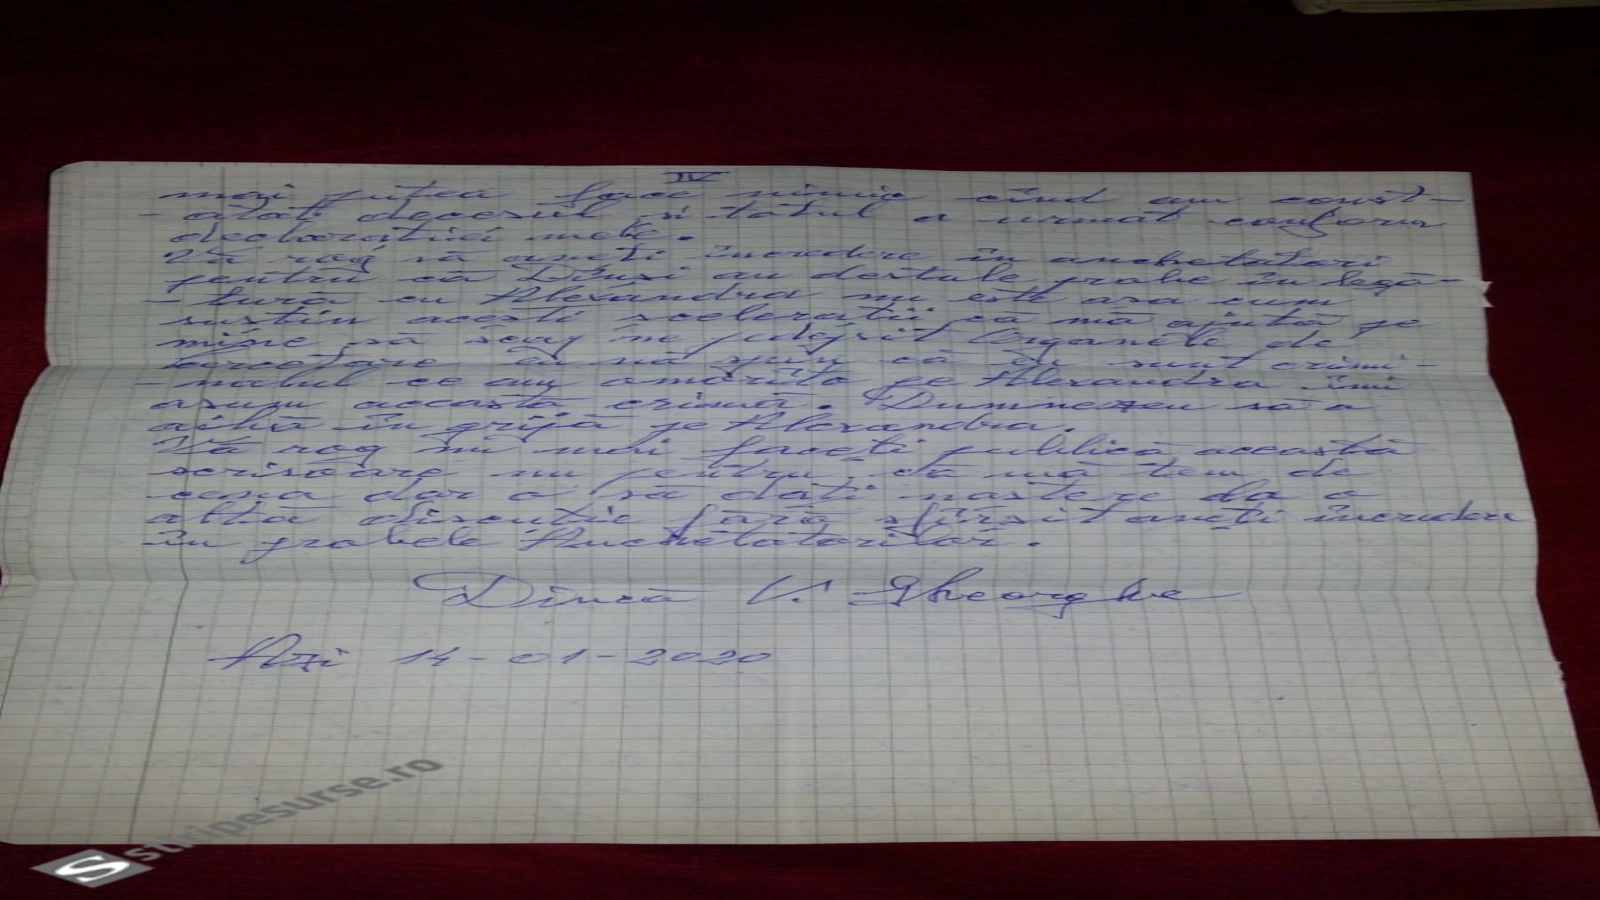 IV
mai putea face nimic cînd am const-
- atat decesul și totul a urmat conform
declaratiei mele.
Vă rog să aveți încredere în anchetatori
pentru că Dînși au destule probe în legă-
- tura cu Alexandra nu este asa cum
sustin acesti scelerati că mă ajută pe
mine să scap ne pedepsit Organele de
cercetare eu vă spun că eu sunt crimi-
- nalul ce am omorîto pe Alexandra îmi
asum aceasta crimă. Dumnezeu să o
aibă în grijă pe Alexandra.
Vă rog nu mai faceți publică această
scrisoare nu pentru că mă tem de
ceva dar o să dați nastere la o
altă discutie fără sfîrsit aveți încredere
în probele Anchetatorilor.
Dincă V. Gheorghe
Azi 14-01-2020
stiripesurse.ro
S